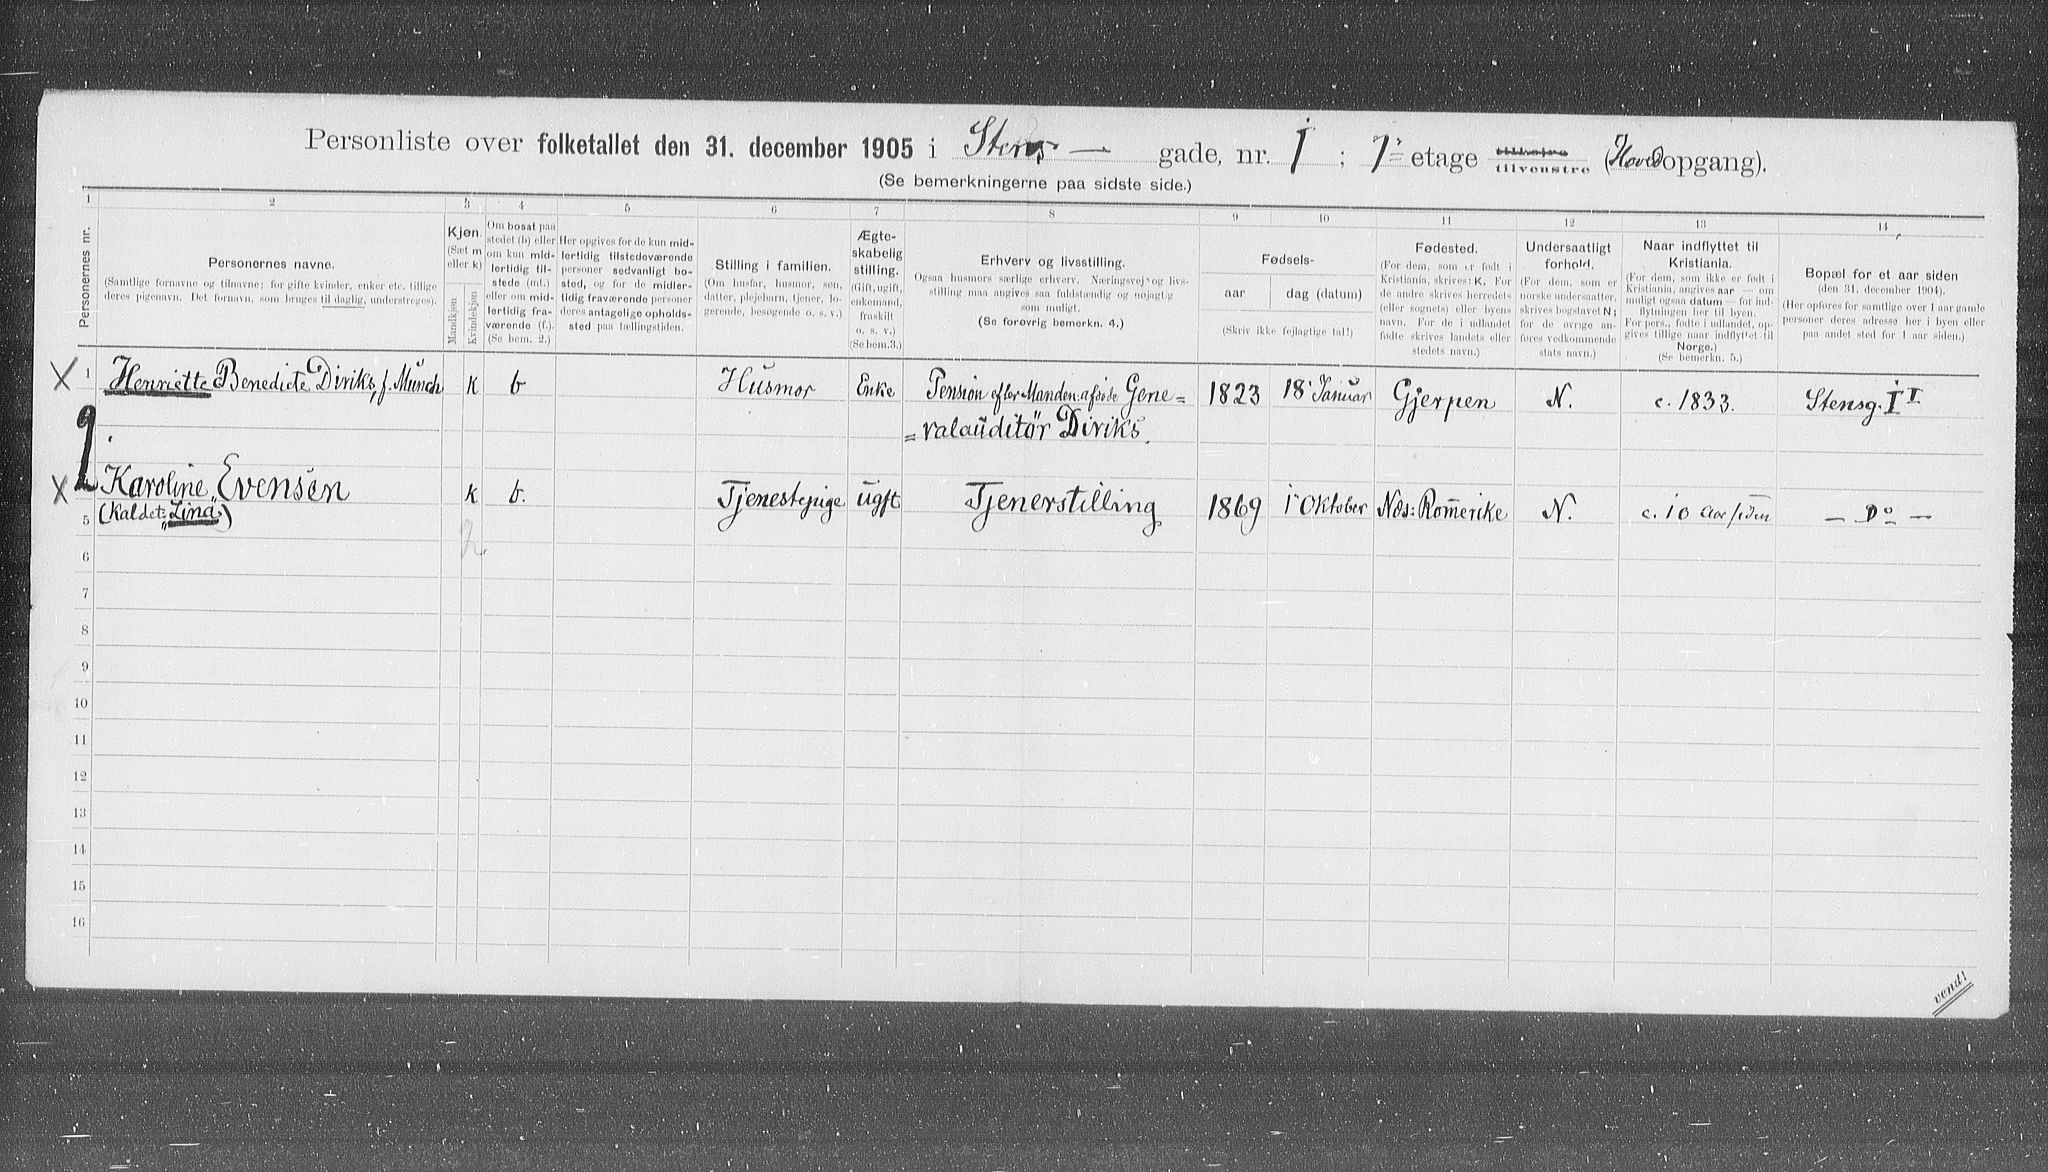 Personliste over folketallet den 31. december 1905 i Stens — gade, nr. 1 ; 1ˢ etage tilhøire tilvenstre (Hovedopgang).
(Se bemerkningerne paa sidste side.)
1 2 3 4 5 6 7 8 9 10 11 12 13 14
Personernes nr.
Personernes navne.
(Samtlige fornavne og tilnavne; for gifte kvinder, enker etc. tillige
deres pigenavn. Det fornavn, som bruges til daglig, understreges).
Kjøn.
(Sæt m
eller k)
Mandkjøn
Kvindekjøn
Om bosat paa
stedet (b) eller
om kun mid-
lertidig til-
stede (mt.)
eller om mid-
lertidig fra-
værende (f.).
(Se bem. 2.)
Her opgives for de kun mid-
lertidig tilstedeværende
personer sedvanligt bo-
sted, og for de midler-
tidig fraværende personer
deres antagelige opholds-
sted paa tællingstiden.
Stilling i familien.
(Om husfar, husmor, søn,
datter, plejebarn, tjener, lo-
gerende, besøgende o. s. v.)
Ægte-
skabelig
stilling.
(Gift, ugift,
enkemand,
fraskilt
o. s. v.)
(Se bem.3.)
Erhverv og livsstilling.
Ogsaa husmors særlige erhverv. Næringsvej og livs-
stilling maa angives saa fuldstændig og nøjagtig
som muligt.
(Se forøvrig bemerkn. 4.)
Fødsels-
aar dag (datum)
(Skriv ikke fejlagtige tal!)
Fødested.
(For dem, som er født i
Kristiania, skrives: K. For
de andre skrives herredets
(eller sognets) eller byens
navn. For de i udlandet
fødte skrives landets eller
stedets navn.)
Undersaatligt
forhold.
(For dem, som er
norske undersaatter,
skrives bogstavet N;
for de øvrige an-
føres vedkommende
stats navn.)
Naar indflyttet til
Kristiania.
(For dem, som ikke er født i
Kristiania, angives aar — om
muligt ogsaa datum — for ind-
flytningen her til byen.
For pers., fødte i udlandet, op-
gives tillige naar indflyttet til
Norge.)
(Se bemerkn. 5.)
Bopæl for et aar siden
(den 31. december 1904).
(Her opføres for samtlige over 1 aar gamle
personer deres adresse her i byen eller
paa andet sted for 1 aar siden.)
X 1 Henriette Benedicte Diriks, f. Munch k b Husmor Enke Pension efter Manden: afdøde Gene= 1823 18' Januar Gjerpen N. c. 1833. Stensg. 1 I
=ralauditør Diriks.
X 2 Karoline Evensen k b. Tjenestepige ugft Tjenerstilling 1869 1' Oktober Næs: Romerike N. c. 10 Aar siden — Dº —
5 (Kaldet: "Lina")
6
7
8
9
10
11
12
13
14
15
16
vend!